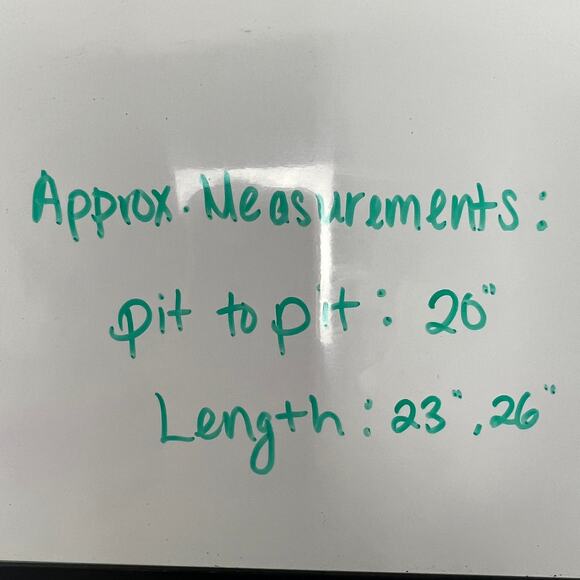 Approx. Measurements:
pit to pit: 20"
Length: 23", 26"